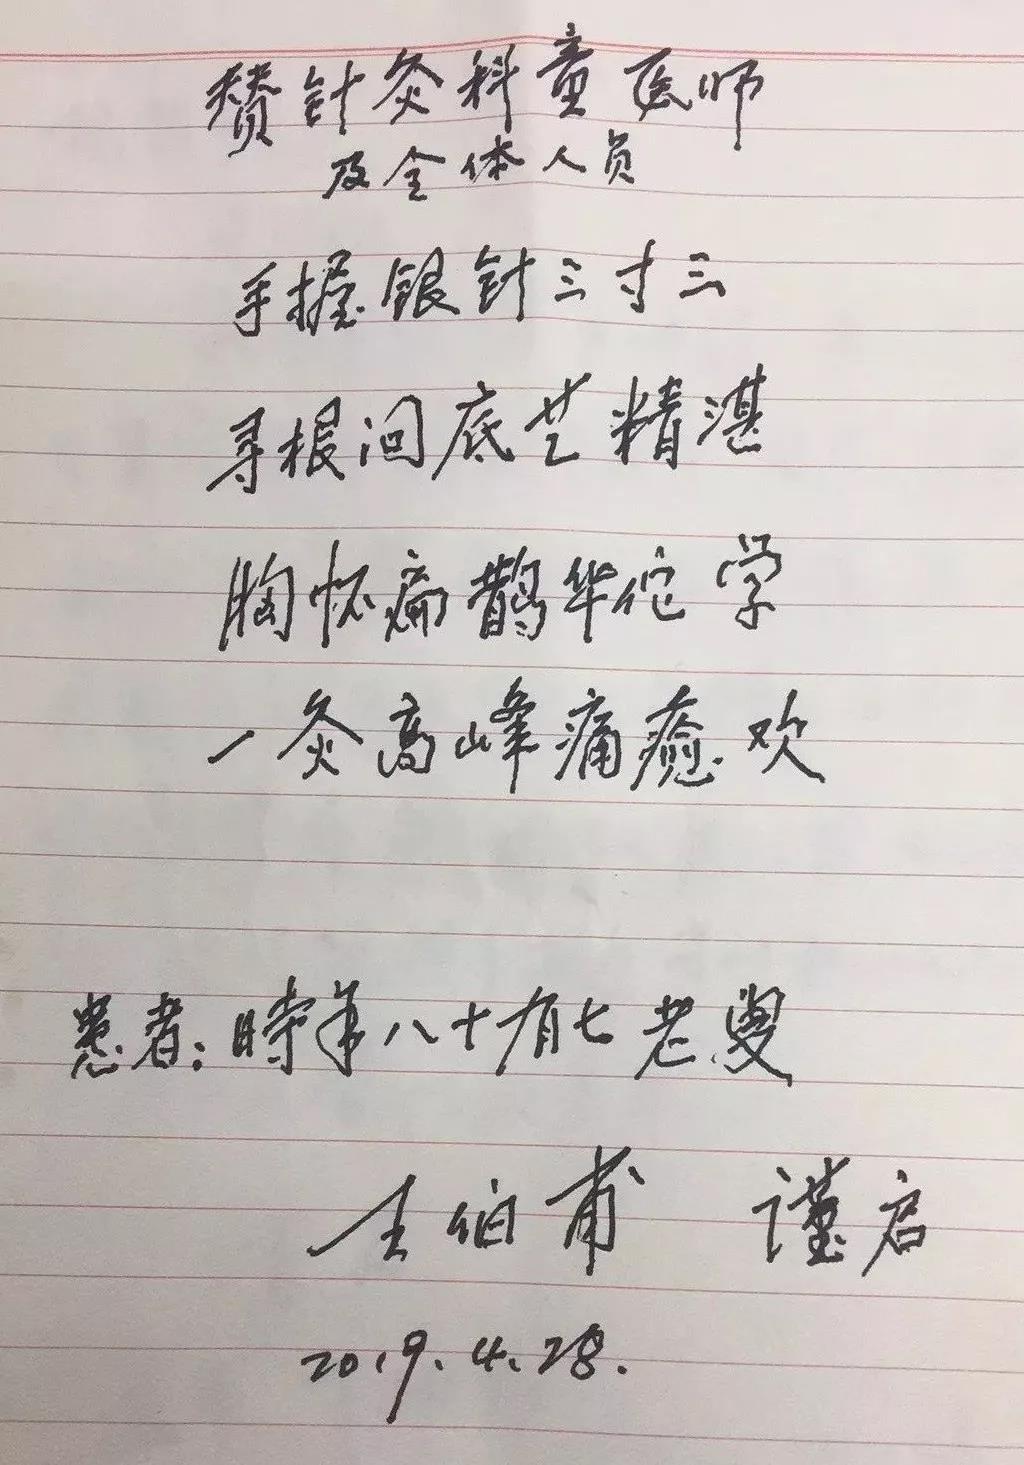 赞针灸科童医师
及全体人员
手握银针三寸三
寻根问底艺精湛
胸怀扁鹊华佗学
一灸高峰痛愈欢
患者:時年八十有七老叟
王伯甫 谨启
2019.4.28.